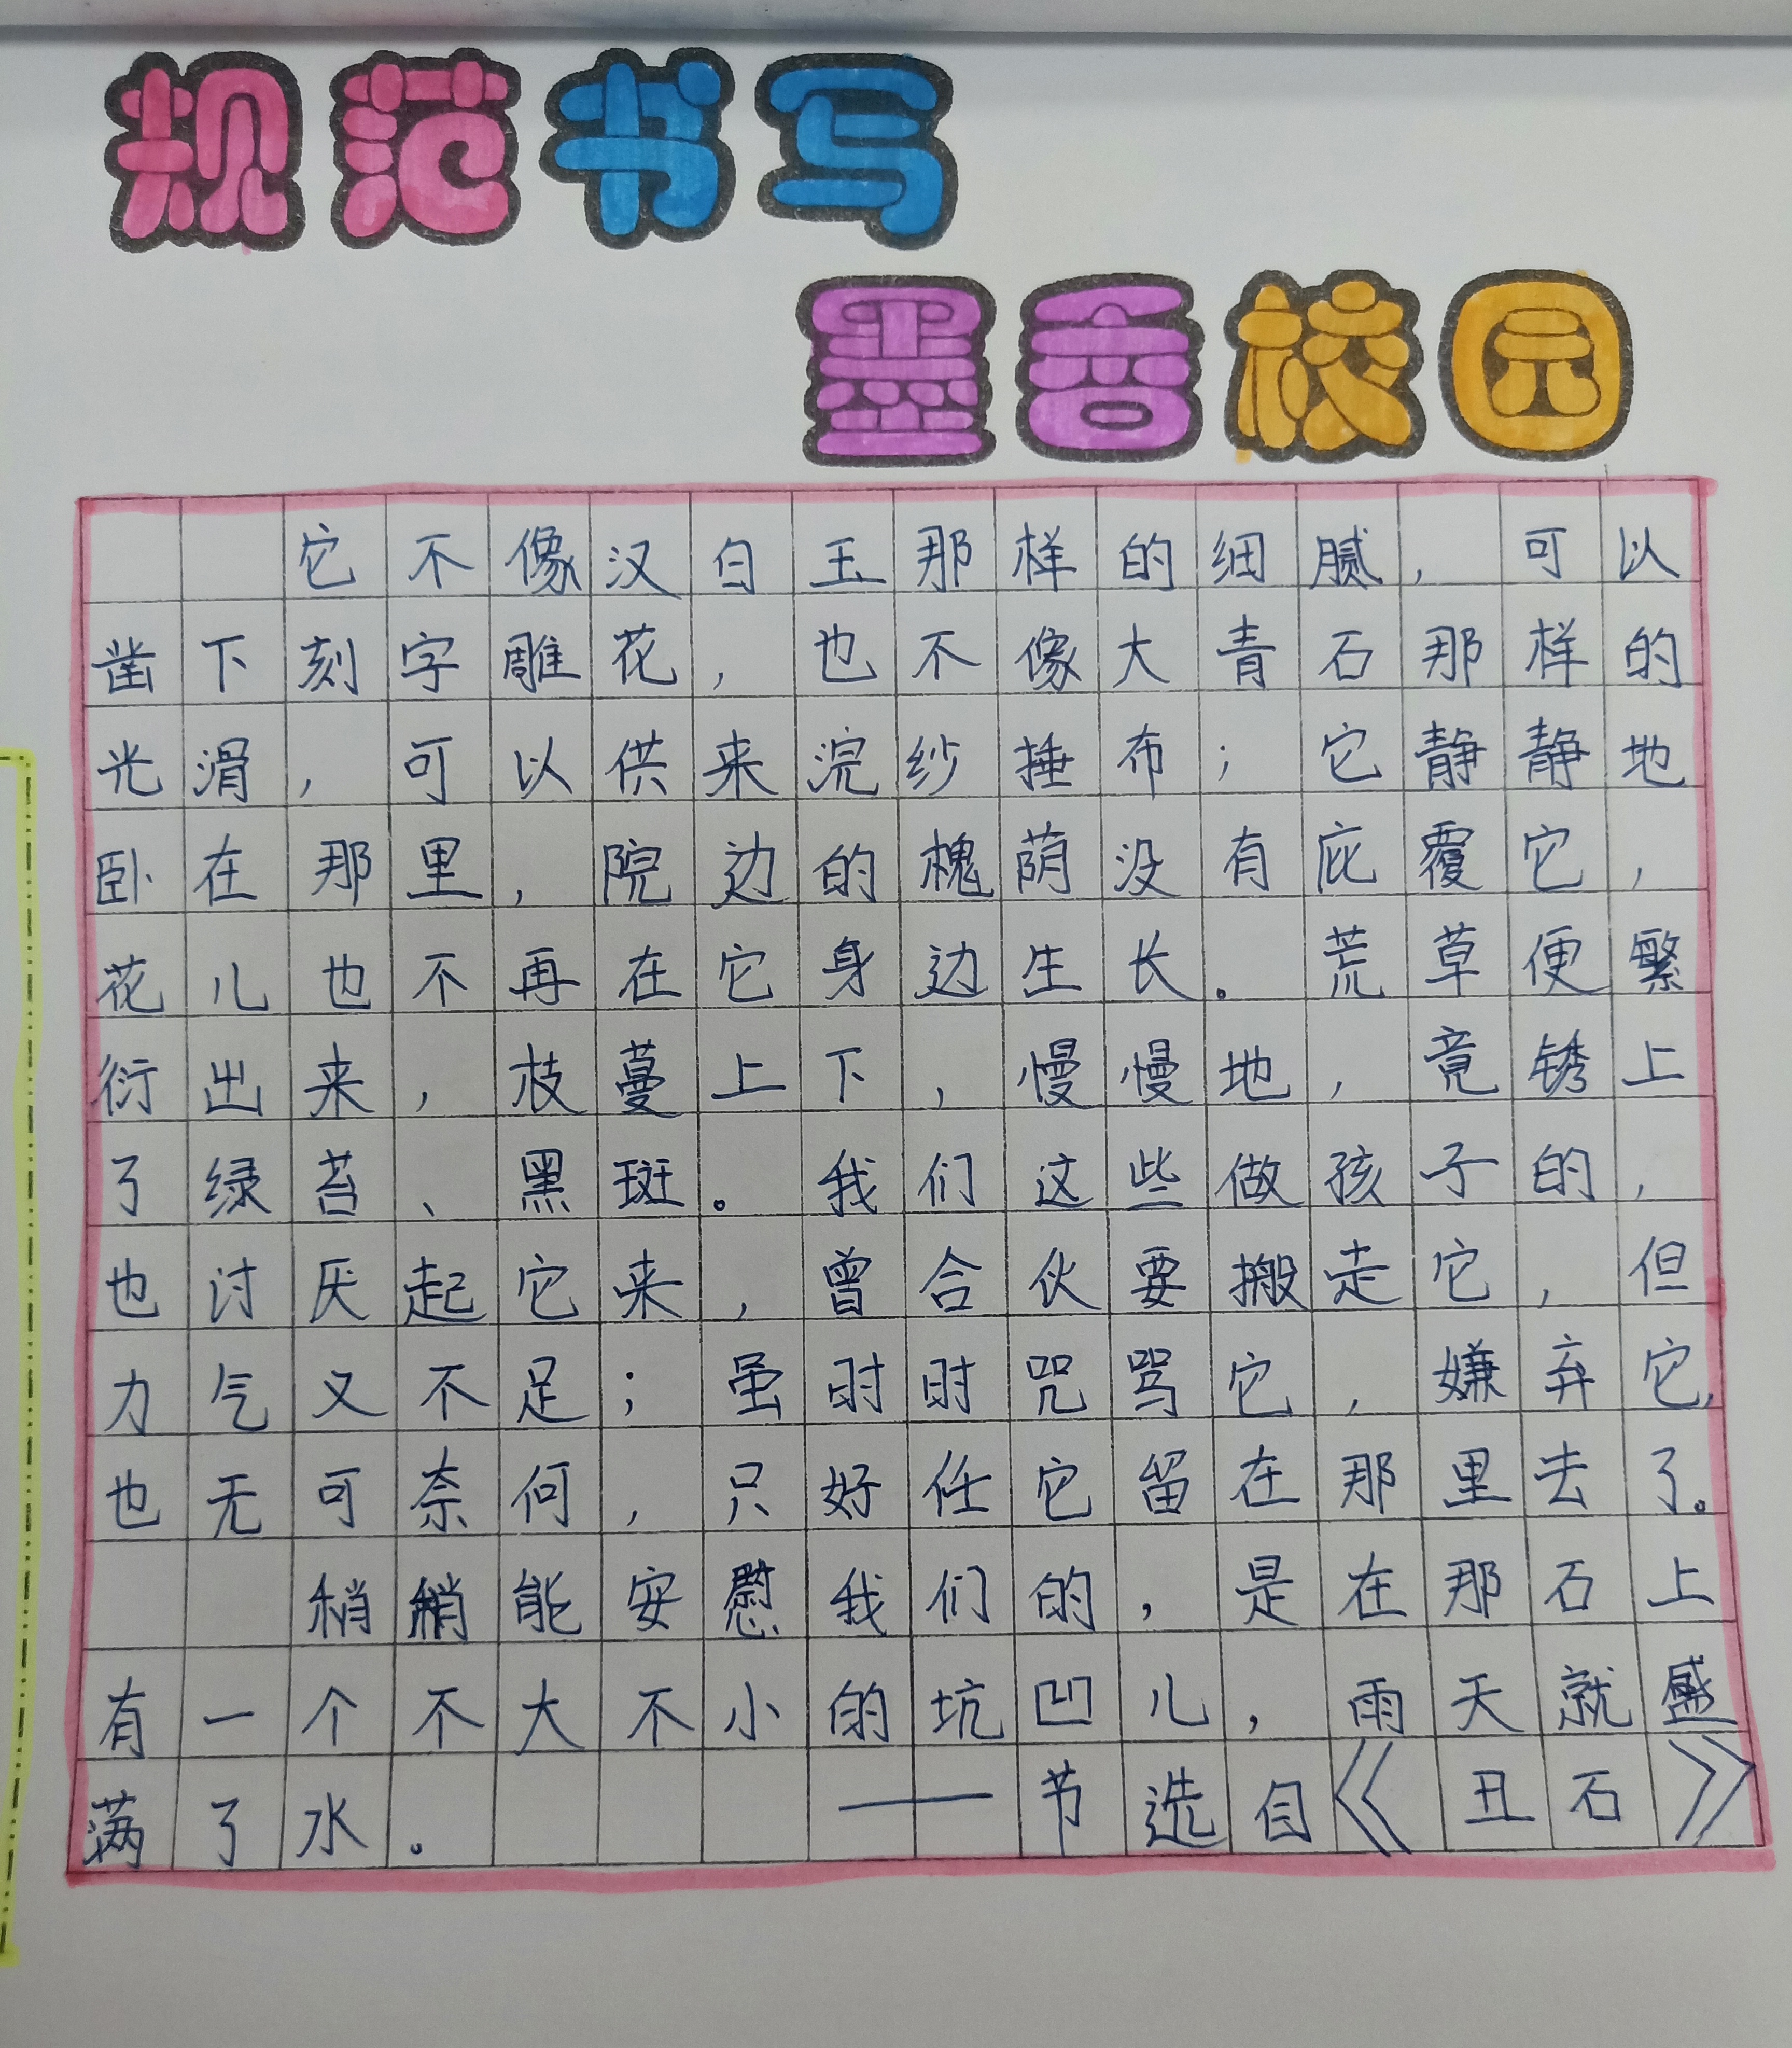 规范书写
墨香校园
它不像汉白玉那样的细腻，可以
凿下刻字雕花，也不像大青石那样的
光滑，可以供来浣纱捶布；它静静地
卧在那里，院边的槐荫没有庇覆它，
花儿也不再在它身边生长。荒草便繁
衍出来，枝蔓上下，慢慢地，竟锈上
了绿苔、黑斑。我们这些做孩子的，
也讨厌起它来，曾合伙要搬走它，但
力气又不足；虽时时咒骂它，嫌弃它，
也无可奈何，只好任它留在那里去了。
稍稍能安慰我们的，是在那石上
有一个不大不小的坑凹儿，雨天就盛
满了水。——节选自《丑石》